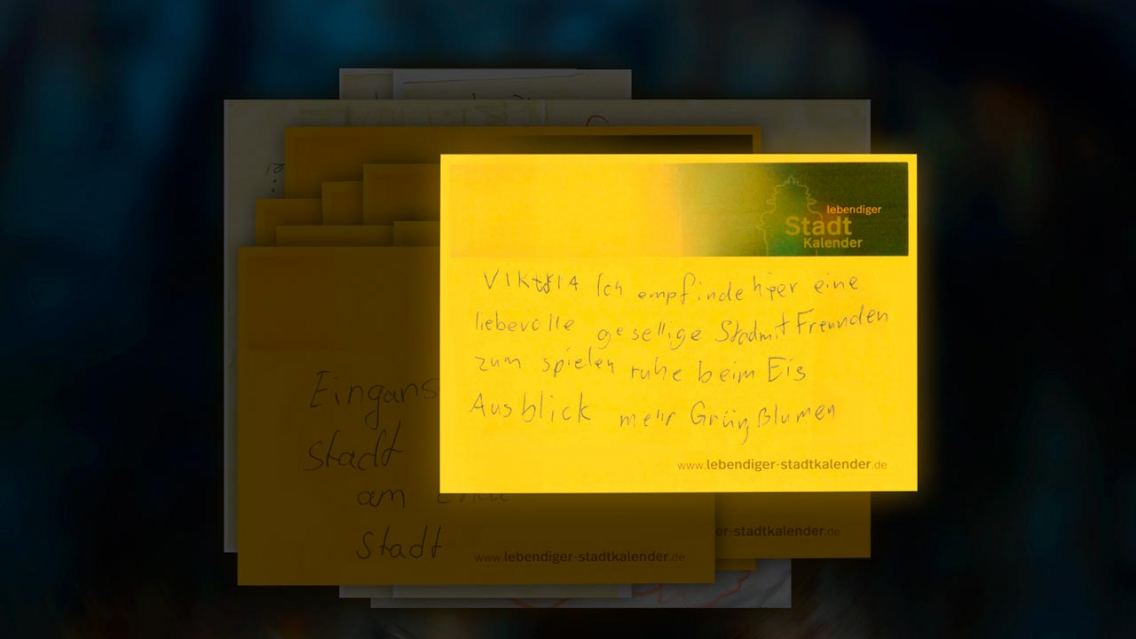 lebendiger
Stadt
Kalender
Ich empfinde hier eine
liebevolle gesellige Stadmit Freunden
zum spielen ruhe beim Eis
Ausblick mehr Grün Blumen
www.lebendiger-stadtkalender.de
Eingans
Stadt
am Ende
Stadt
www.lebendiger-stadtkalender.de
er-stadtkalender.de